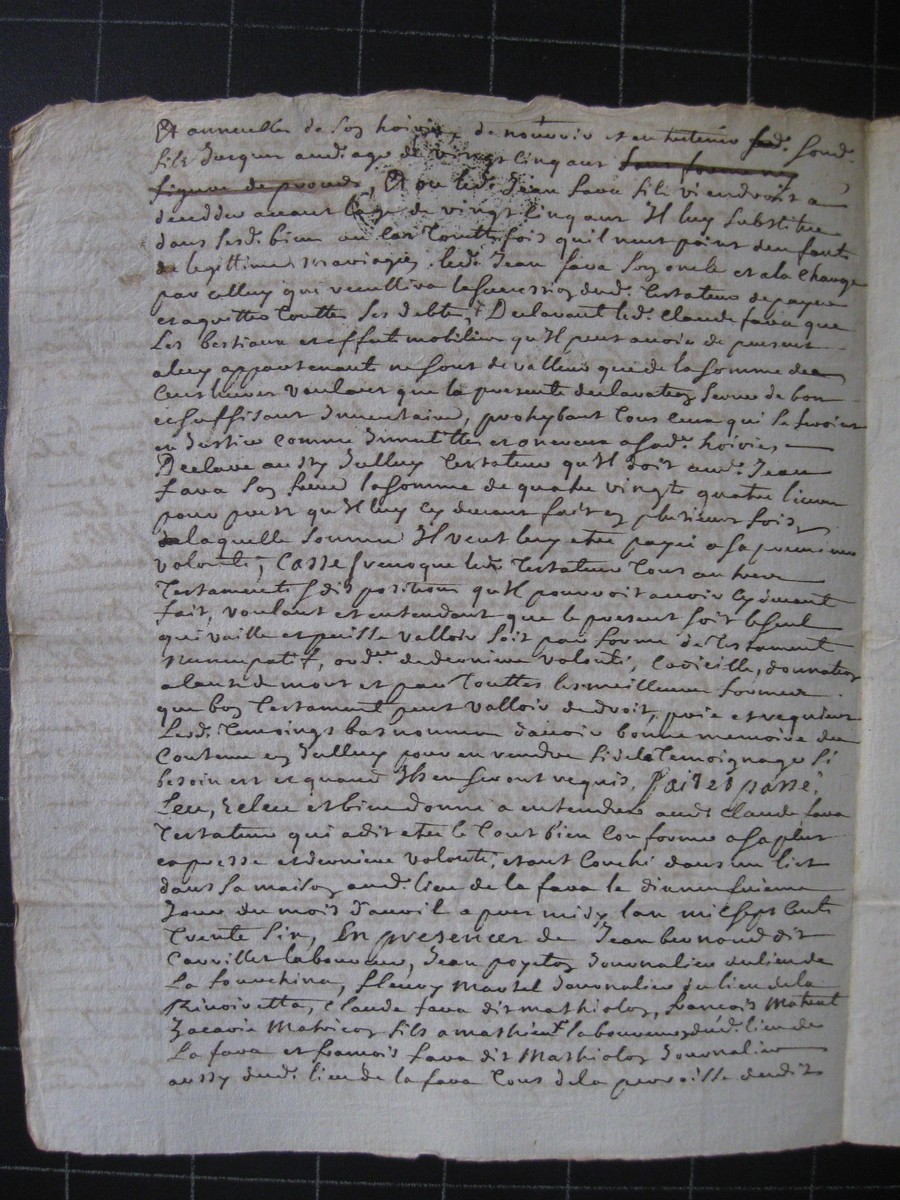 Et annuelles de son hoirie, de nourrir et entretenir sond.
fils jusques aud. age de vingt cinq ans
figure de proces, Et ou led. Jean fava fils viendroit a
deceder avant lage de vingt cinq ans Il luy substitue
dans sesd. biens au cas touttefois quil neut point denfants
de legittime mariage, led. Jean fava son oncle et a la charge
par celluy qui recullira la succession dud. testateur de payer
et aquitter touttes ses debtes, Declarant led. Claude fava que
Les bestiaux et effet mobiliers qu'Il peut avoir de present
a luy appartenant ne sont de valleur que de la somme de
Cent livres voulant que la presente declaration serve de bon
et suffisant Inventaire, prohybant tous ceux qui se feroient
en Justice comme Innutilles et onereux a sad. hoirie,
Declare aussy Icelluy testateur qu'Il doit aud. Jean
fava son frere la somme de quatre vingt quatre livres
pour prest qu'Il luy cy devant fait en plusieurs fois,
de laquelle somme Il veut luy etre payé a sa premiere
volonté, Casse & revoque led. testateur tous autres
testaments & dispositions qu'Il pourroit avoir cy devant
fait, voulant et entendant que le present soit le seul
qui vaille et puisse valloir soit par forme de testament
Nuncupatif, ord.re de derniere volonté, Codicille, donnation
a cause de mort et par touttes les meilleures formes
que bon testament peut valloir de droit, prie et requiert
Lesd. temoings bas nommés davoir bonne memoire du
Contenu en Icelluy pour en rendre fidele temoignage si
besoin est et quand Ils en seront requis, fait et passé,
Leu, Releu et bien donné a entendre aud. Claude fava
testateur qui a dit etre le tout bien conforme a sa plus
expresse et derniere volonté, etant couché dans un lict
dans sa maison aud. lieu de la fava le dixneufvieme
Jour du mois d'avril apres midy lan mil sept cents
trente six, En presences de Jean bernoud dit
laboureur, Jean poyeton Journalier du lieu de
La fourchina, fleury Martel Journalier du lieu de la
Claude fava dit mathiolon, francois Matent
Zacarie Matricon fils a mathieu laboureurs dud. lieu de
La fava et francois fava dit Mathiolon Journalier
aussy dud. lieu de la fava tous de la parroisse dudit